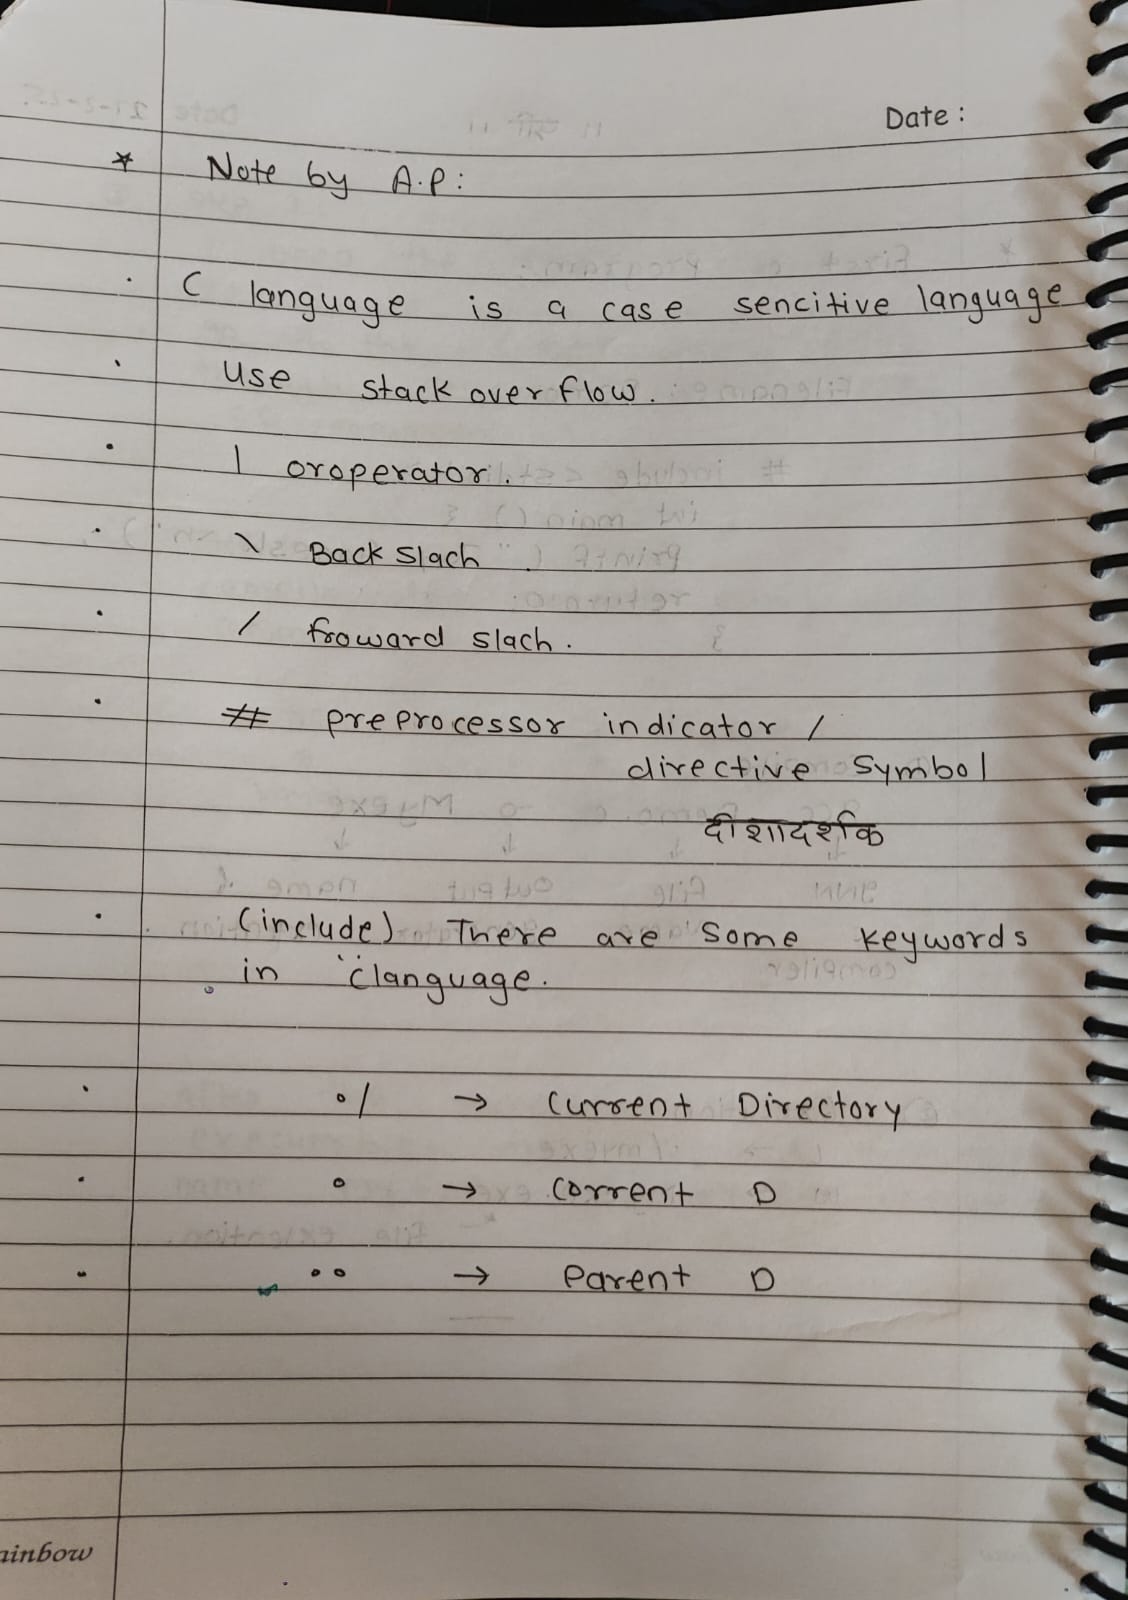 Date :
* Note by A.P:
. C language is a case sencitive language
. use stack overflow.
. | oroperator.
. \ Back slach .
. / froward slach.
. # preprocessor indicator /
directive symbol
दीशादर्शक
. (include) There are some keywords
. in "c language.
. ./ → current Directory
. . → corrent D
. .. → parent D
ainbow